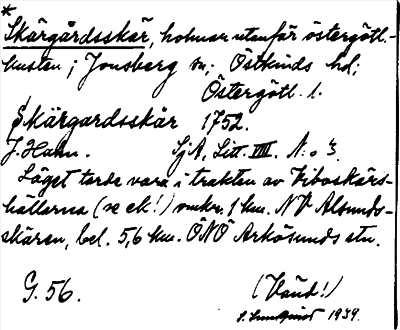 *
Skärgårdsskär, holmar utanför östergötl.-
kusten i Jonsberg sn; Östkinds hd;
Östergötl. l.
Skärgardsskär 1752.
J. Hahn. SjA, Litt. VIII. N:o 3.
Läget torde vara i trakten av Viboskärs-
hällarna (se ek!) omkr. 1 km. NV Alsunds-
skären, bel. 5,6 km. ÖNÖ Arkösunds stn.
G. 56. (Vänd!)
S. Sundquist 1939.